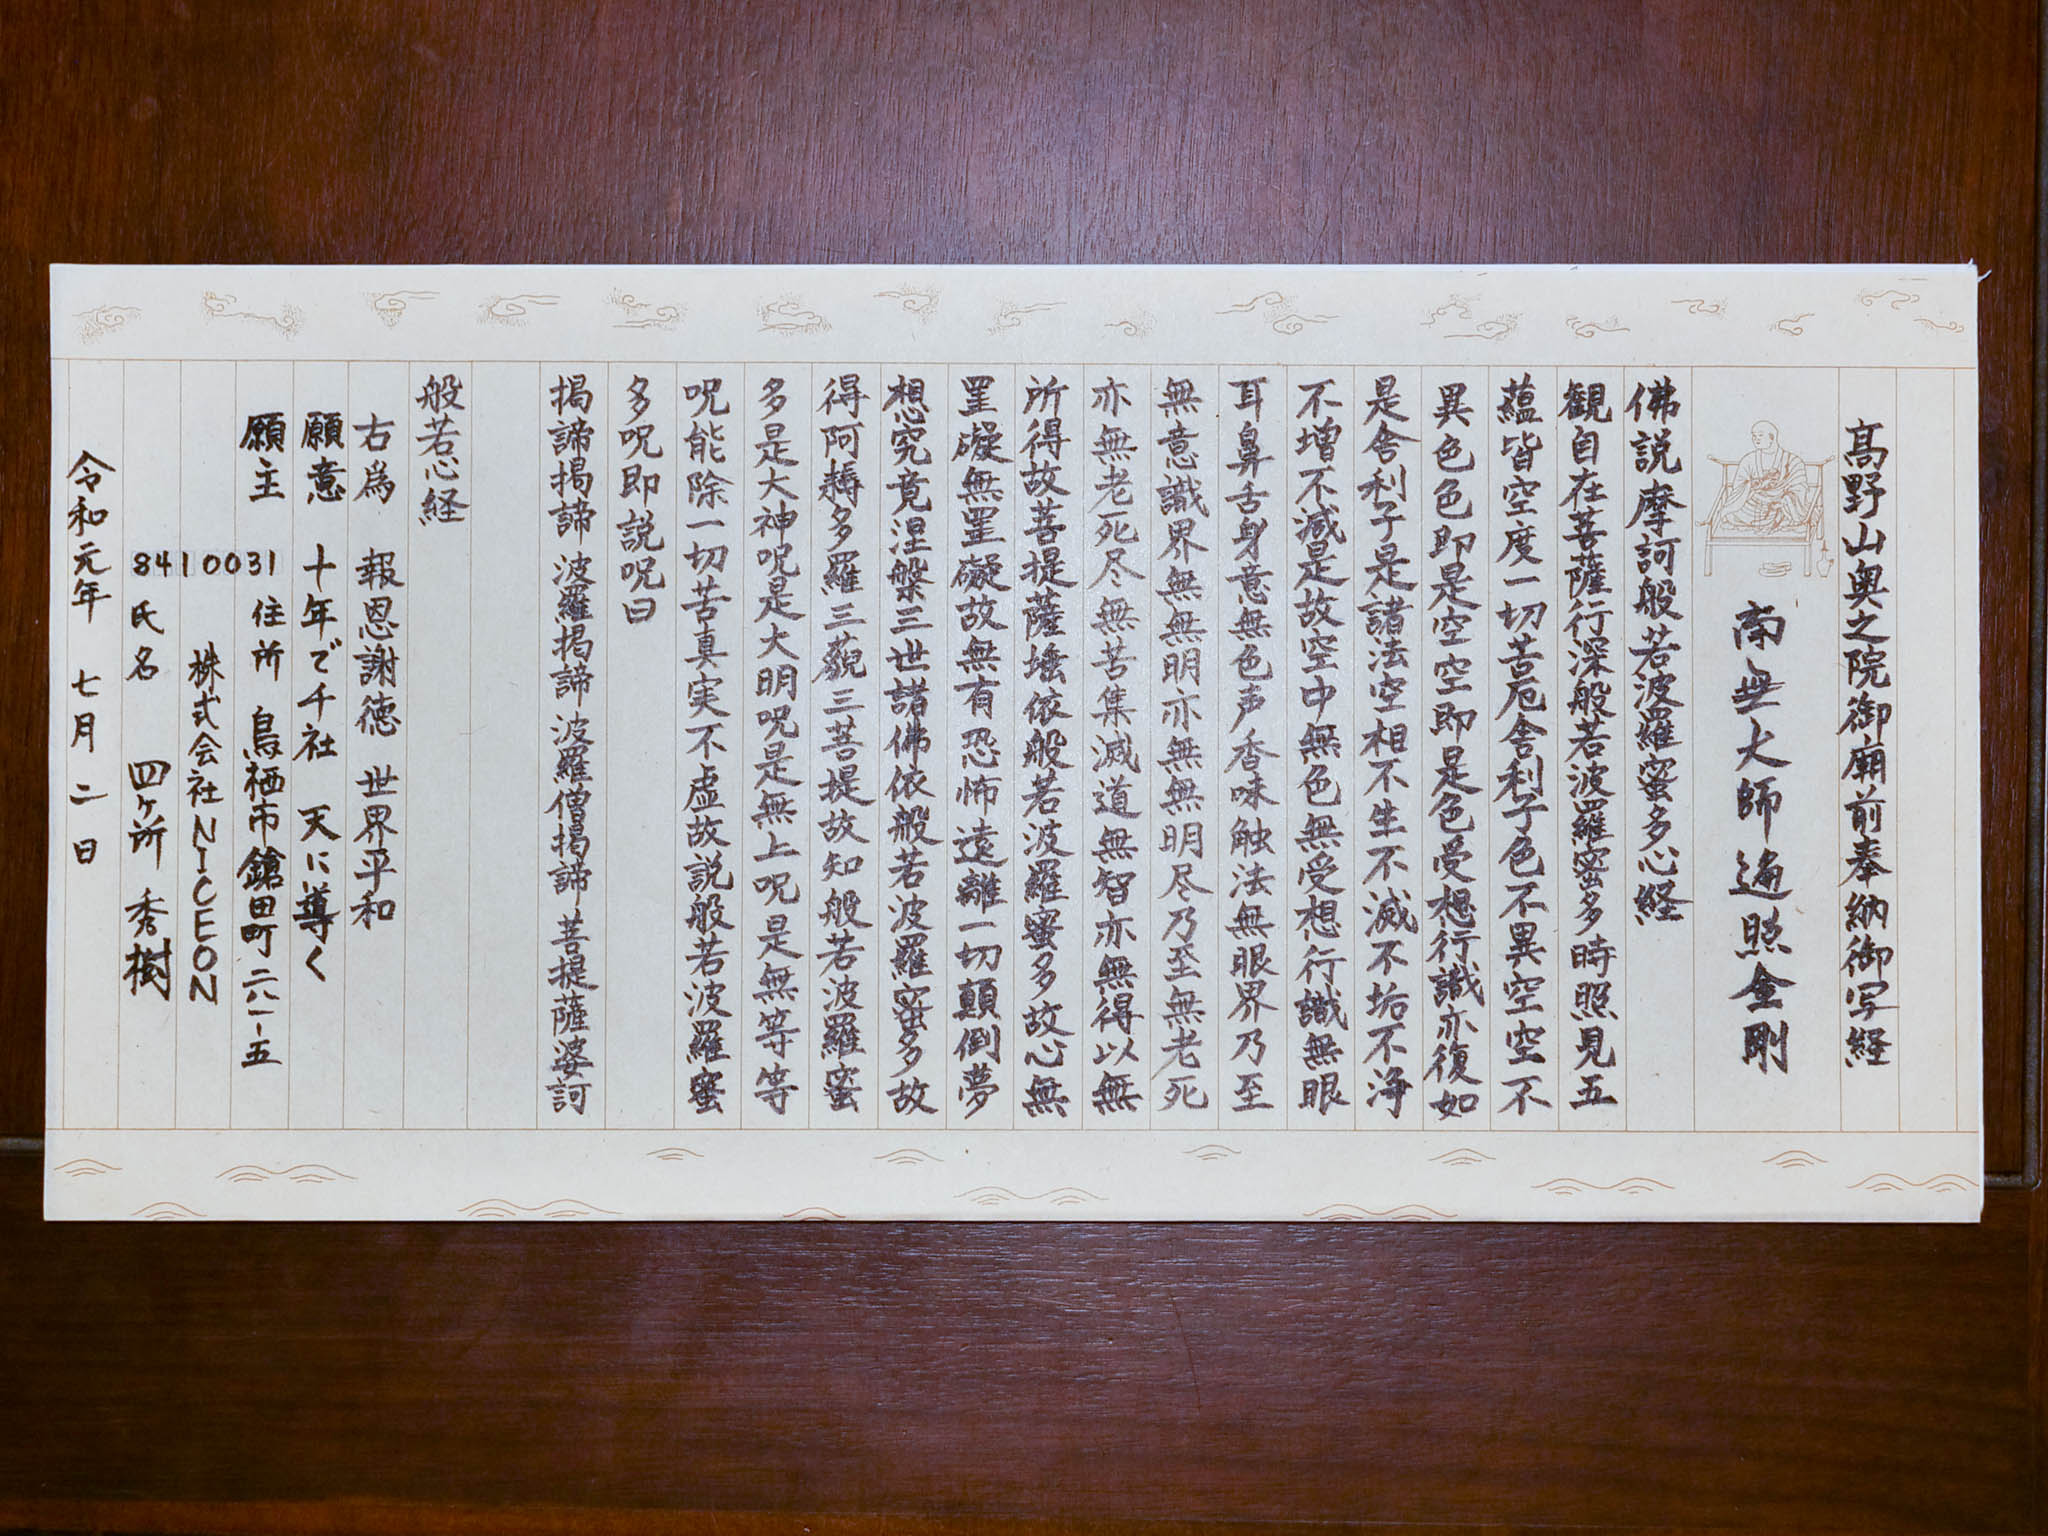 高野山奥之院御廟前奉納御写経
南無大師遍照金剛
佛説摩訶般若波羅蜜多心経
観自在菩薩行深般若波羅蜜多時照見五
蘊皆空度一切苦厄舎利子色不異空空不
異色色即是空空即是色受想行識亦復如
是舎利子是諸法空相不生不滅不垢不浄
不増不減是故空中無色無受想行識無眼
耳鼻舌身意無色声香味触法無眼界乃至
無意識界無無明亦無無明尽乃至無老死
亦無老死尽無苦集滅道無智亦無得以無
所得故菩提薩埵依般若波羅蜜多故心無
罣礙無罣礙故無有恐怖遠離一切顛倒夢
想究竟涅槃三世諸佛依般若波羅蜜多故
得阿耨多羅三藐三菩提故知般若波羅蜜
多是大神呪是大明呪是無上呪是無等等
呪能除一切苦真実不虚故説般若波羅蜜
多呪即説呪曰
掲諦掲諦 波羅掲諦 波羅僧掲諦 菩提薩婆訶
般若心経
右為 報恩謝徳 世界平和
願意 十年で千社 天に導く
願主 8410031 住所 鳥栖市鎗田町二八一-五
株式会社NICEON
氏名 四ヶ所 秀樹
令和元年 七月二日